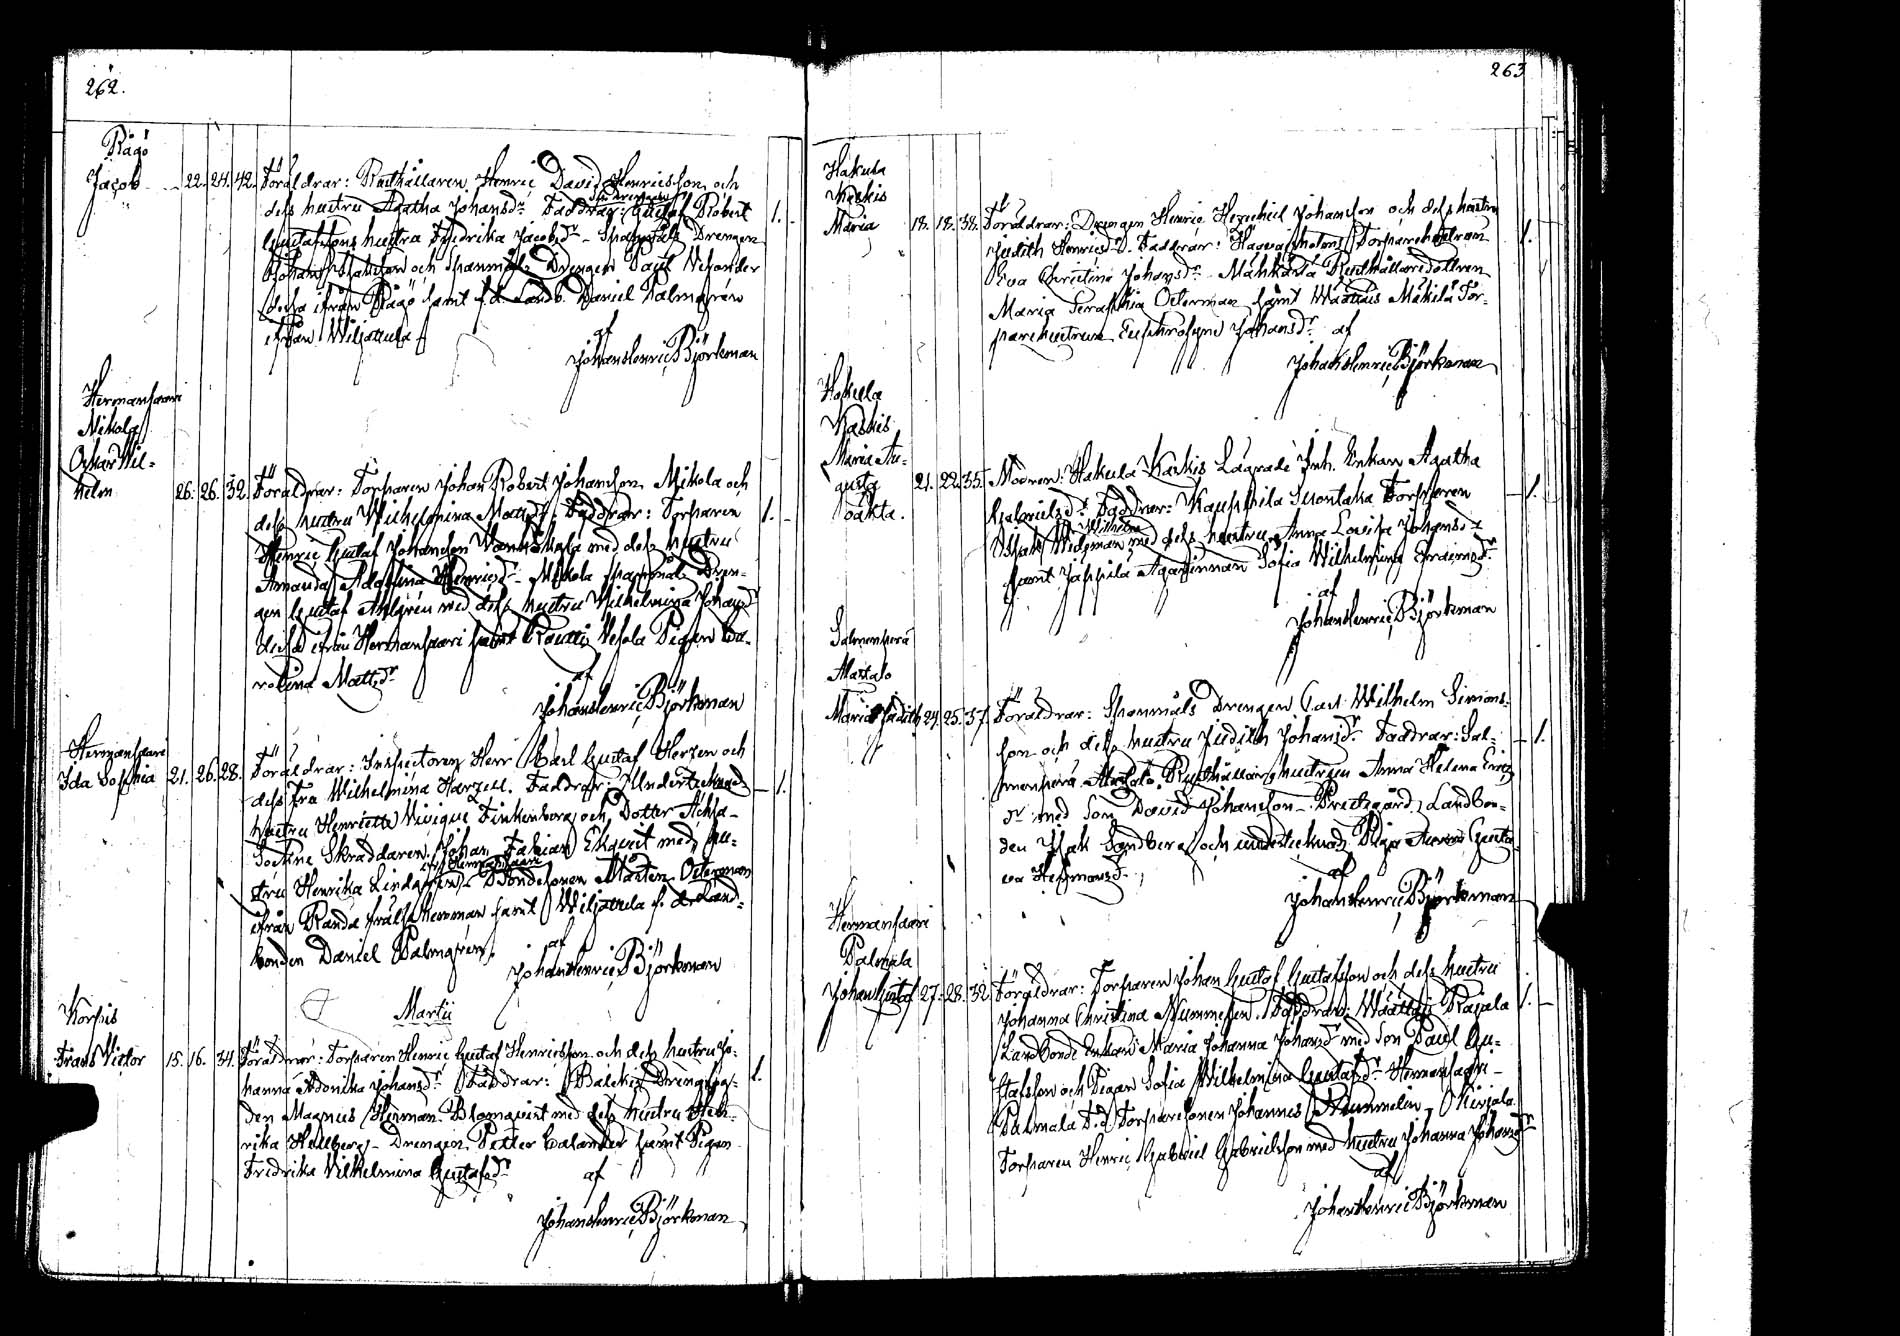 262.
Rägö
Jacob 22. 24. 42. Föräldrar: Rusthållaren Henric David Henricsson och
dess hustru Agatha Johansdr Faddrar: Gustaf Robert
Gustafssons hustru Fredrika Jacobsdr - Spanmåls Drengen
Johan Isaksson och Spanmåls Drengen Paul Welander
dessa ifrån Rägö samt f.d. Landb. Daniel Palmgren
ifrån Wiljanula
af
Johan Henric Björkman
1.
Hermansaari
Mikola
Oskar Wil-
helm 26. 26. 32. Föräldrar: Torparen Johan Robert Johansson Mikola och
dess hustru Wilhelmina Mattsdr. Faddrar: Torparen
Henric Gustaf Johansson med dess hustru
Amanda Adolfina Henricsdr. Mikola Spanmåls Dren-
gen Gustaf Ahlgren med dess hustru Wilhelmina Johansdr
dessa ifrån Hermansaari samt Wesola Pigan Ca-
rolina Mattsdr.
af
Johan Henric Björkman
1.
Hermansaari
Ida Sophia 21. 26. 28. Föräldrar: Inspectoren Herr Carl Gustaf Herzen och
dess Fru Wilhelmina Harzell. Faddrar: Undertecknads
hustru Henriette Finkenberg och Dotter
Sockne Skräddaren Johan Fabian Ekqvist med hu-
stru Henrika Lindgren - Bondesonen Mårten Osterman
ifrån Hermansaari
ifrån Randa Herrman samt Wiljanula f. d. Land-
bonden Daniel Palmgren.
af
Johan Henric Björkman
1.
Martii
Korpis
Frans Victor 15. 16. 34. Föräldrar: Torparen Henric Gustaf Henricsson och dess hustru Jo-
hanna Adonika Johansdr. Faddrar:
den Magnus Herman Blomqvist med dess hustru Hen-
rika Hellberg - Drengen Petter Calander samt Pigan
Fredrika Wilhelmina Gustafsdr.
af
Johan Henric Björkman
1.
263
Hakula
Kaskis
Maria 18. 18. 38. Föräldrar: Drengen Henric Hezechiel Johansson och dess hustru
Judith Henricsdr. Faddrar: Torparehustrun
Eva Christina Johansdr - Rusthållaredottren
Maria Seraphia Osterman samt Mäkilä Tor-
parehustrun Euphrosyne Johansdr. af
Johan Henric Björkman
1.
Hakula
Kaskis
Maria Au-
gusta 21. 22. 35. Modren: Hakula Kaskis Lägrade Inh. Enkan Agatha
oäkta. Gabrielsdr. Faddrar: Kauppila Suontaka Torparen
Isak Wilhelm Widgman med dess hustru Anna Lovisa Johansdr
samt Jappila Ägarinnan Sofia Wilhelmina Efraimsdr.
af
Johan Henric Björkman
1.
Salmenperä
Alastalo
Maria Judith 24. 25. 37. Föräldrar: Spanmåls Drengen Carl Wilhelm Simons-
son och dess hustru Judith Johansdr. Faddrar: Sal-
menperä Alastalo Rusthållarehustrun Anna Helena Erics
dr. med Son David Johansson - Prestgård Landbon-
den Isak Sandberg och undertecknads Piga Gusta-
va Hermansdr.
af
Johan Henric Björkman
1.
Hermansaari
Palmala
Johan Gustaf 27. 28. 32. Föräldrar: Torparen Johan Gustaf Gustafsson och dess hustru
Johanna Christina Nummelin. Faddrar: Rajala
Landbonde Enkan Maria Johanna Johansdr. med Son Paul Gu-
stafsson och Pigan Sofia Wilhelmina Gustafsdr. Hermansaari -
Palmala T.d. Torparesonen Johannes Nummelin - Kirjala
Torparen Henric Gabriel Gabrielsson med hustru Johanna Johansdr
af
Johan Henric Björkman
1.